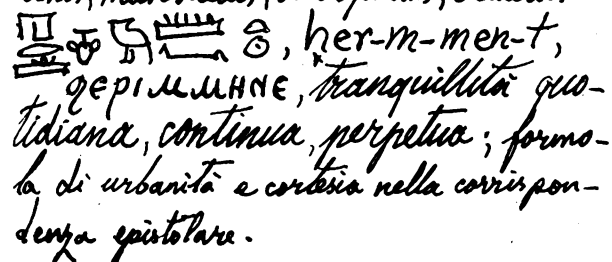 ḥer-m-men-t,
ϥⲉⲣⲓⲙⲙⲏⲛⲉ, tranquillità quo-
tidiana, continua, perpetua; formo-
la di urbanità e cortesia nella corrispon-
denza epistolare.